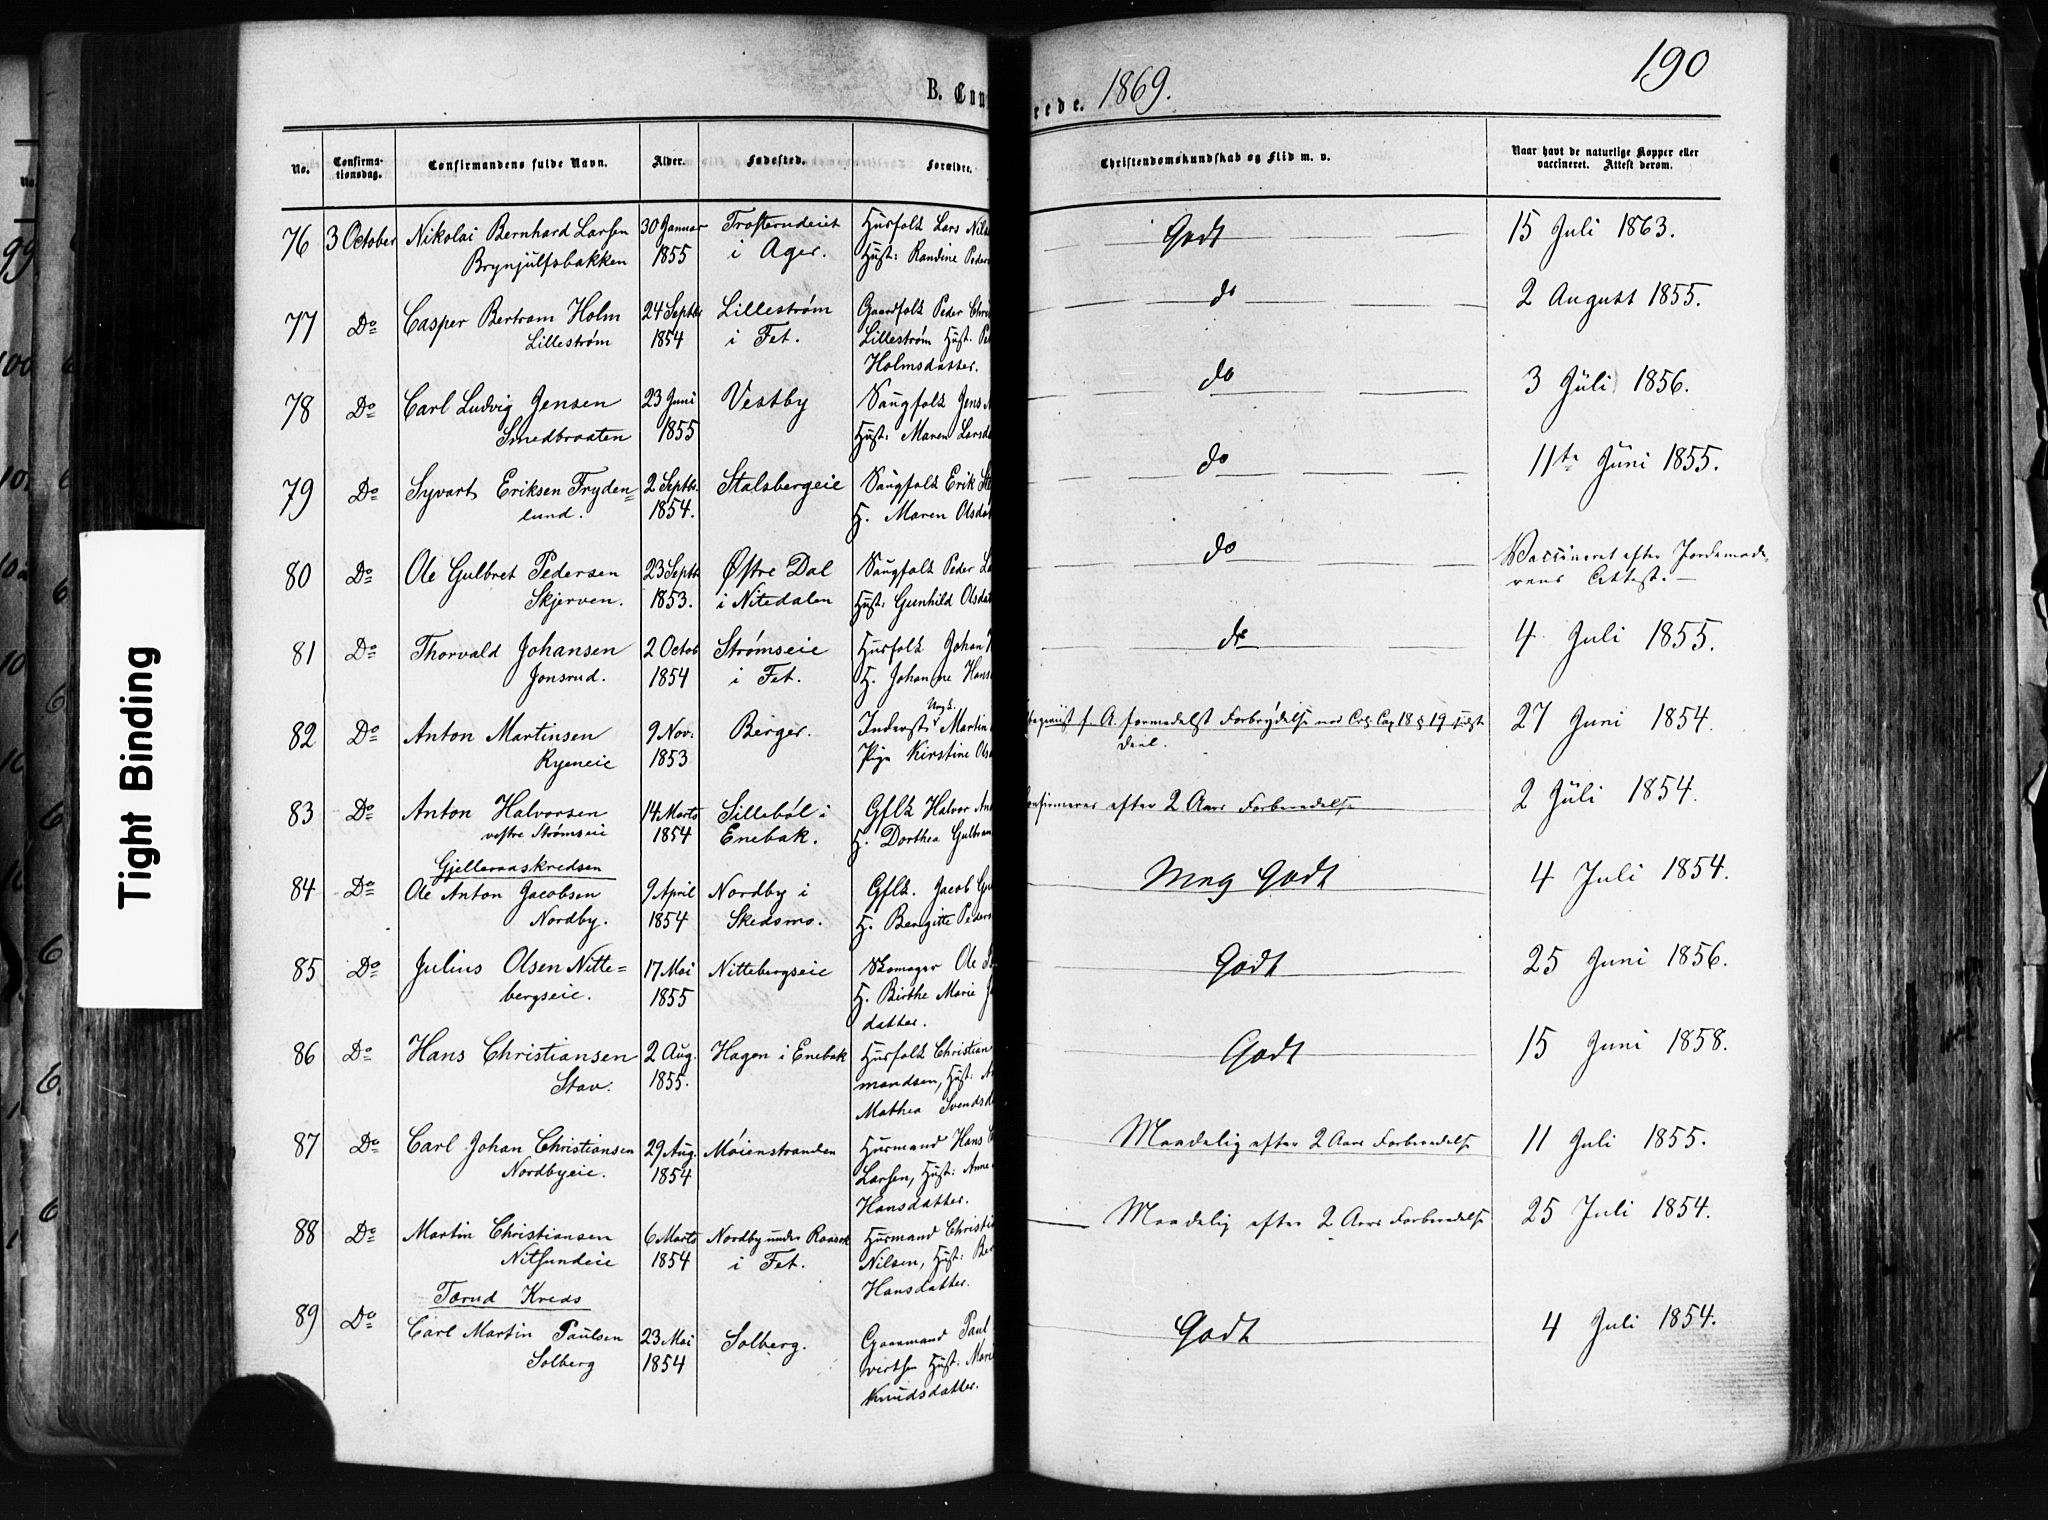 190
B. Con
rede. 1869.
No.
Confirma-
tionsdag.
Confirmandens fulde Navn.
Alder.
Fødested.
Forældre.
Christendomskundskab og Flid m. v.
Naar havt de naturlige Kopper eller
vaccineret. Attest derom.
76 3 October Nikolai Bernhard Larsen 30 Januar i Ager. Husfolk Lars Nils Godt 15 Juli 1863.
Brynjulfsbakken 1855 Hust: Randine Peders
77 Do Casper Bertram Holm 24 Septbr Lillestrøm Gaardfolk Peder Chri do 2 August 1855.
Lillestrøm 1854 i Fet. Lillestrøm Hust.
Holmsdatter.
78 Do Carl Ludvig Jensen 23 Juni Vestby Saugfolk Jens do 3 Juli 1856.
Smedbraaten 1855 Hust: Maren Larsda
79 Do Syvart Eriksen Fryden= 2 Septbr. Stalsbergeie Saugfolk Erik do 11te Juni 1855.
lund. 1854. H. Maren Olsdat
80 Do Ole Gulbret Pedersen 23 Septb Østre Dal Saugfolk Peder do Vaccineret efter Jordemode-
Skjerven. 1853. i Nitedalen Hust: Gunhild Olsdat rens Attest.
81 Do Thorvald Johansen 2 Octob Strømseie Husfolk Johan do 4 Juli 1855.
Jonsrud. 1854 i Fet. H. Johanne Hans
82 Do Anton Martinsen 9 Nov. Berger. Inderst Ungk. Martin f. A. formedelst Forbrydelse mod Crl. Cap 18 § 19 27 Juni 1854.
Ryeneie 1853 Pige Kirstine Ols
83 Do Anton Halvorsen 14 Marts Sillebøl i Gflk Halvor An onfirmeres efter 2 Aars Forberedelse 2 Juli 1854.
vestre Strømseie 1854 Enebak. H. Dorthea Gulbran
Gjelleraaskredsen
84 Do Ole Anton Jacobsen 9 April Nordby i Gflk. Jacob Gu Meg Godt 4 Juli 1854.
Nordby. 1854 Skedsmo. H. Bergitte Peders
85 Do Julius Olsen Nitte= 17 Mai Nittebergseie Skomager Ole Godt 25 Juni 1856.
bergseie. 1855 H. Birthe Marie
datter.
86 Do Hans Christiansen 2 Aug. Hagen i Enebak Husfolk Christian Godt 15 Juni 1858.
Stav. 1855. mandsen, Hust:
Mathea Svendsd
87 Do Carl Johan Christiansen 29 Aug. Møienstranden Husmand Hans Maadelig efter 2 Aars Forberedelse 11 Juli 1855.
Nordbyeie. 1854 Larsen, Hust: Anne
Hansdatter.
88 Do Martin Christiansen 6 Marts Nordby under Husmand Christia Maadelig efter 2 Aars Forberedelse 25 Juli 1854.
Nitsundeie 1854 i Fet. Nilsen, Hust: Ber
Hansdatter.
Tærud Kreds
89 Do Carl Martin Paulsen 23 Mai Solberg. Gaarmand Paul Godt 4 Juli 1854.
Solberg 1854 Hust: Mari
Knudsdatter.
Tight Binding